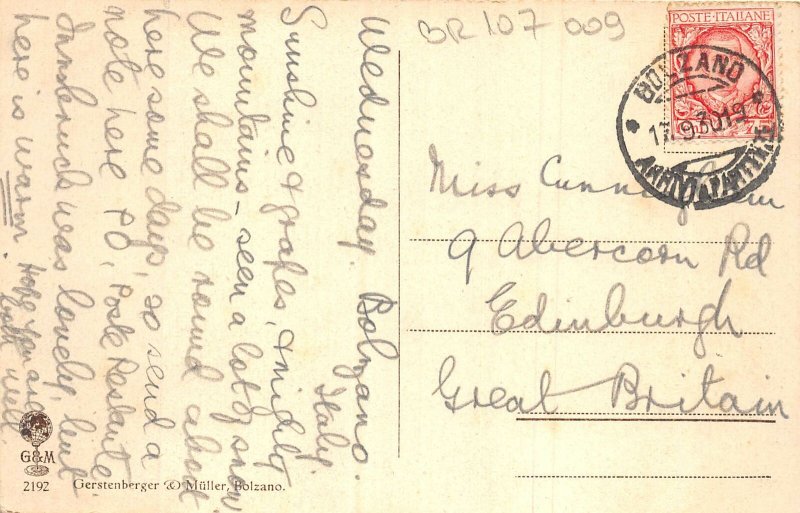 BR 107 009
POSTE·ITALIANE
BOLZANO
17.9.30.19
Wednesday. Bolzano.
Italy.
Sunshine & grapes, & mighty
mountains – seen a lot of snow
We shall be round about
here some days, so send a
note here P.O, Poste Restante
Innsbruck was lovely, but
here is warm Hope you are
both well.
Miss Cunningham
9 Abercorn Rd
Edinburgh
Great Britain
G&M
2192 Gerstenberger & Müller, Bolzano.